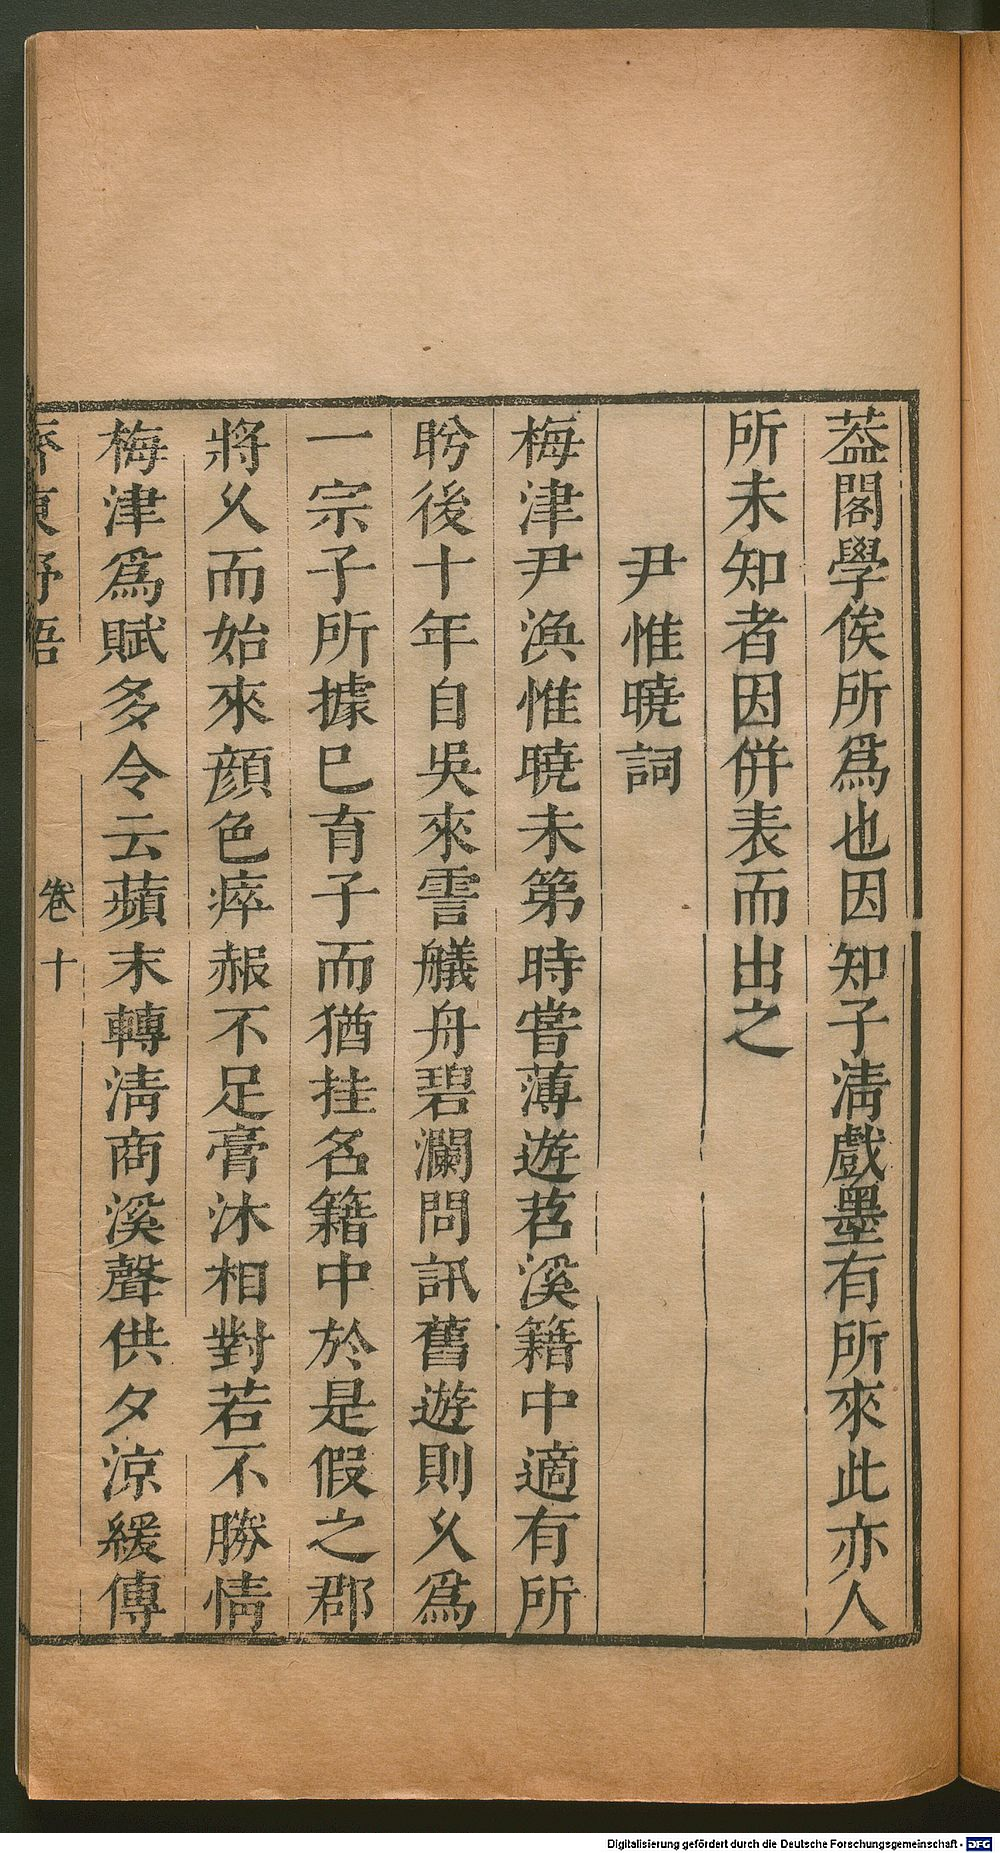 葢閣學俟所爲也因知子淸戲墨有所來此亦人
所未知者因併表而出之
尹惟曉詞
梅津尹渙惟曉未第時嘗薄遊苕溪籍中適有所
盻後十年自吳來霅艤舟碧瀾問訊舊遊則乆爲
一宗子所據巳育子而猶挂名籍中於是假之郡
將乆而始來顔色瘁赧不足膏沐相對若不勝情
梅津爲賦多令云蘋末轉淸商溪聲供夕涼緩傳
齊東野語
卷十
Digitalisierung gefördert durch die Deutsche Forschungsgemeinschaft - DFG